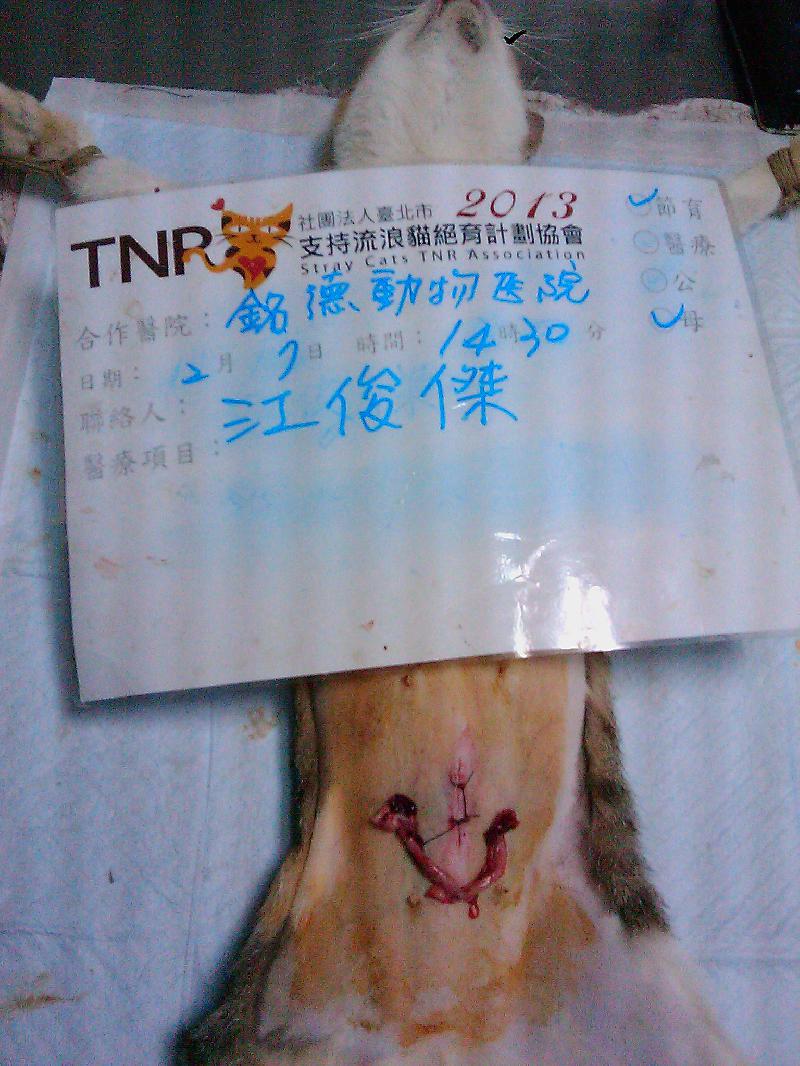 TNR
社團法人臺北市 2013
支持流浪貓絕育計劃協會
Stray Cats TNR Association
節育
醫療
公
母
合作醫院：銘德動物医院
日期：2月7日 時間：14時30分
聯絡人：江俊傑
醫療項目：